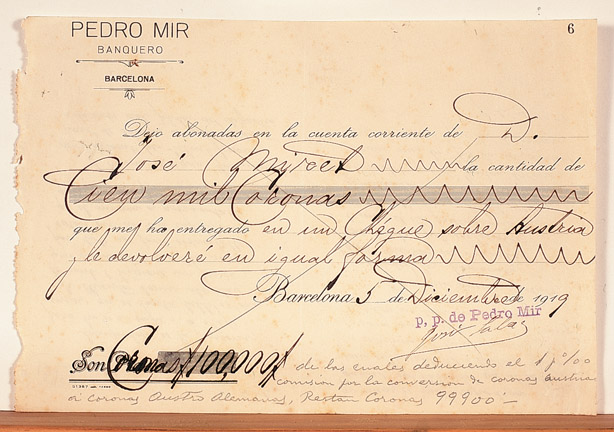 PEDRO MIR
6
BANQUERO
BARCELONA
Dejo abonadas en la cuenta corriente de D.
José Miret la cantidad de
Cien mil Coronas
que me ha entregado en un Chéque sobre Austria
y le devolveré en igual forma
Barcelona 5 de Diciembre de 1919
p. p. de Pedro Mir
José
Son Coronas 100,000
de las cuales deduciendo el 1 p% oo
comision por la conversion de coronas austria
coronas Austro Alemanas, Restan Coronas 99900'-